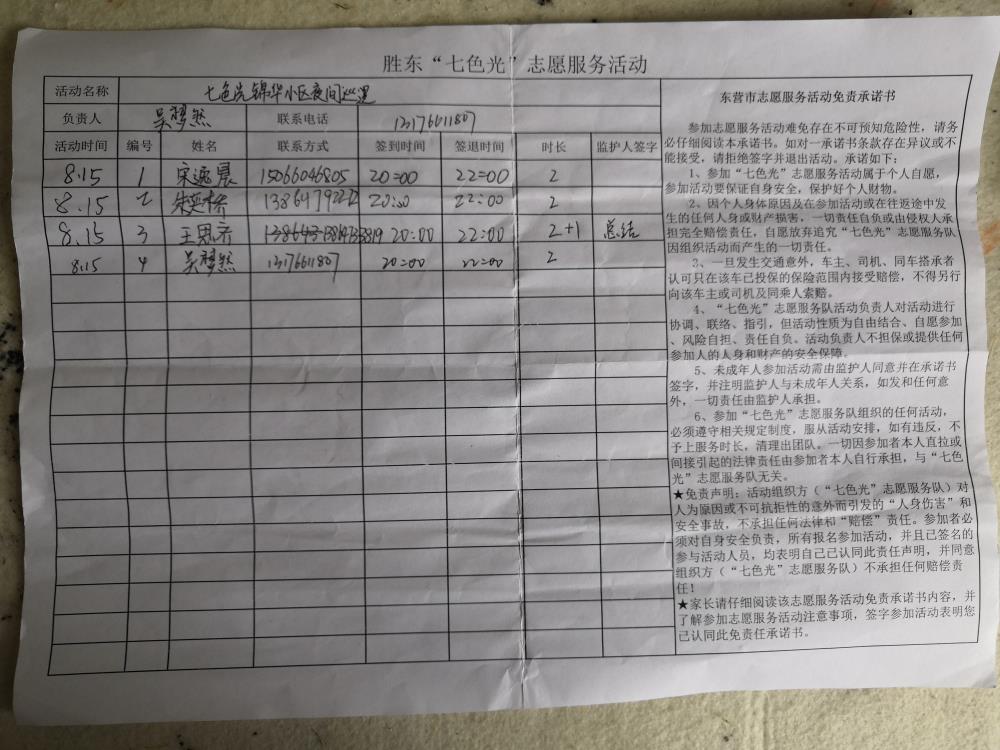 胜东“七色光”志愿服务活动
活动名称 七色光锦华小区夜间巡逻
负责人 吴梦然 联系电话 13176611807
活动时间 编号 姓名 联系方式 签到时间 签退时间 时长 监护人签字
8.15 1 宋逸晨 15066046805 20:00 22:00 2
8.15 2 20:00 22:00 2
8.15 3 王思齐 20:00 22:00 2+1 总结
8.15 4 吴梦然 13176611807 20:00 22:00 2
东营市志愿服务活动免责承诺书
参加志愿服务活动难免存在不可预知危险性，请务
必仔细阅读本承诺书。如对一承诺书条款存在异议或不
能接受，请拒绝签字并退出活动。承诺如下：
1、参加“七色光”志愿服务活动属于个人自愿，
参加活动要保证自身安全，保护好个人财物。
2、因个人身体原因及在参加活动或在往返途中发
生的任何人身或财产损害，一切责任自负或由侵权人承
担完全赔偿责任，自愿放弃追究“七色光”志愿服务队
因组织活动而产生的一切责任。
3、一旦发生交通意外，车主、司机、同车搭承者
认可只在该车已投保的保险范围内接受赔偿，不得另行
向该车主或司机及同乘人索赔。
4、“七色光”志愿服务队活动负责人对活动进行
协调、联络、指引，但活动性质为自由结合、自愿参加
、风险自担、责任自负。活动负责人不担保或提供任何
参加人的人身和财产的安全保障。
5、未成年人参加活动需由监护人同意并在承诺书
签字，并注明监护人与未成年人关系，如发和任何意
外，一切责任由监护人承担。
6、参加“七色光”志愿服务队组织的任何活动，
必须遵守相关规定制度，服从活动安排，如有违反，不
予上服务时长，清理出团队。一切因参加者本人直拉或
间接引起的法律责任由参加者本人自行承担，与“七色
光”志愿服务队无关。
★免责声明：活动组织方（“七色光”志愿服务队）对
人为原因或不可抗拒性的意外而引发的“人身伤害”和
安全事故，不承担任何法律和“赔偿”责任。参加者必
须对自身安全负责，所有报名参加活动，并且已签名的
参与活动人员，均表明自己已认同此责任声明，并同意
组织方（“七色光”志愿服务队）不承担任何赔偿责
任！
★家长请仔细阅读该志愿服务活动免责承诺书内容，并
了解参加志愿服务活动注意事项，签字参加活动表明您
已认同此免责任承诺书。